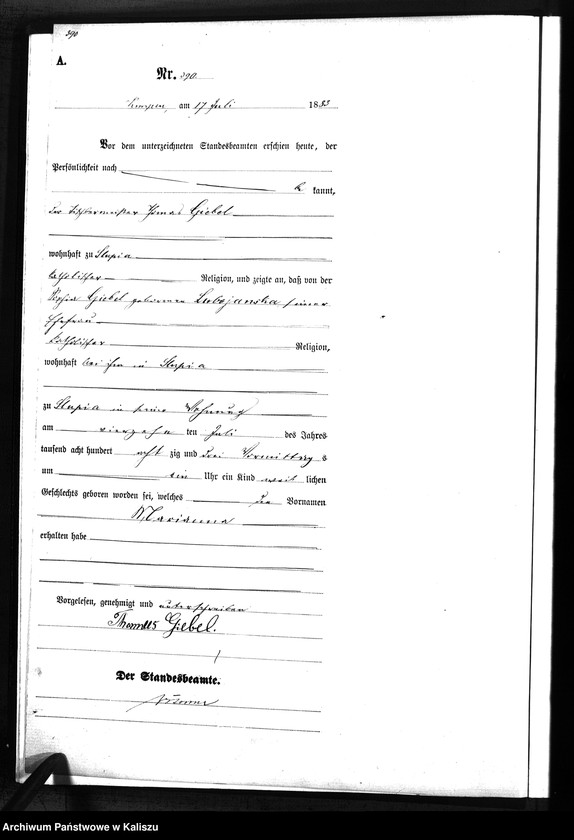 390
A.
Nr. 390
Kempen, am 17 Juli 1883
Vor dem unterzeichneten Standesbeamten erschien heute, der
Persönlichkeit nach
be kannt,
der Tischlermeister Thomas Giebel
wohnhaft zu Slupia
katholischer Religion, und zeigte an, daß von der
Giebel geborenen Lubojanska seiner
Ehefrau
katholischer Religion,
wohnhaft bei ihm in Slupia
zu Slupia in seiner Wohnung
am vierzehn ten Juli des Jahres
tausend acht hundert acht zig und drei Vormittag s
um ein Uhr ein Kind weib lichen
Geschlechts geboren worden sei, welches den Vornamen
Marianna
erhalten habe
Vorgelesen, genehmigt und unterschrieben
Thomas Giebel.
Der Standesbeamte.
Archiwum Państwowe w Kaliszu